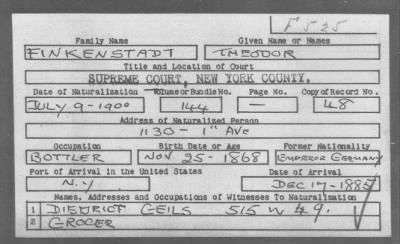 F 525
Family Name Given Name or Names
FINKENSTADT THEODOR
Title and Location of Court
SUPREME COURT, NEW YORK COUNTY.
Date of Naturalization Volume or Bundle No. Page No. Copy of Record No.
JULY 9-1900 144 — 48
Address of Naturalized Person
1130 - 1" AVE
Occupation Birth Date or Age Former Nationality
BOTTLER NOV 25-1868 EMPEROR GERMANY
Port of Arrival in the United States Date of Arrival
N.Y DEC 17-1885
Names, Addresses and Occupations of Witnesses To Naturalization
1 DIEDRICT GEILS 515 W 49.
2 GROCER